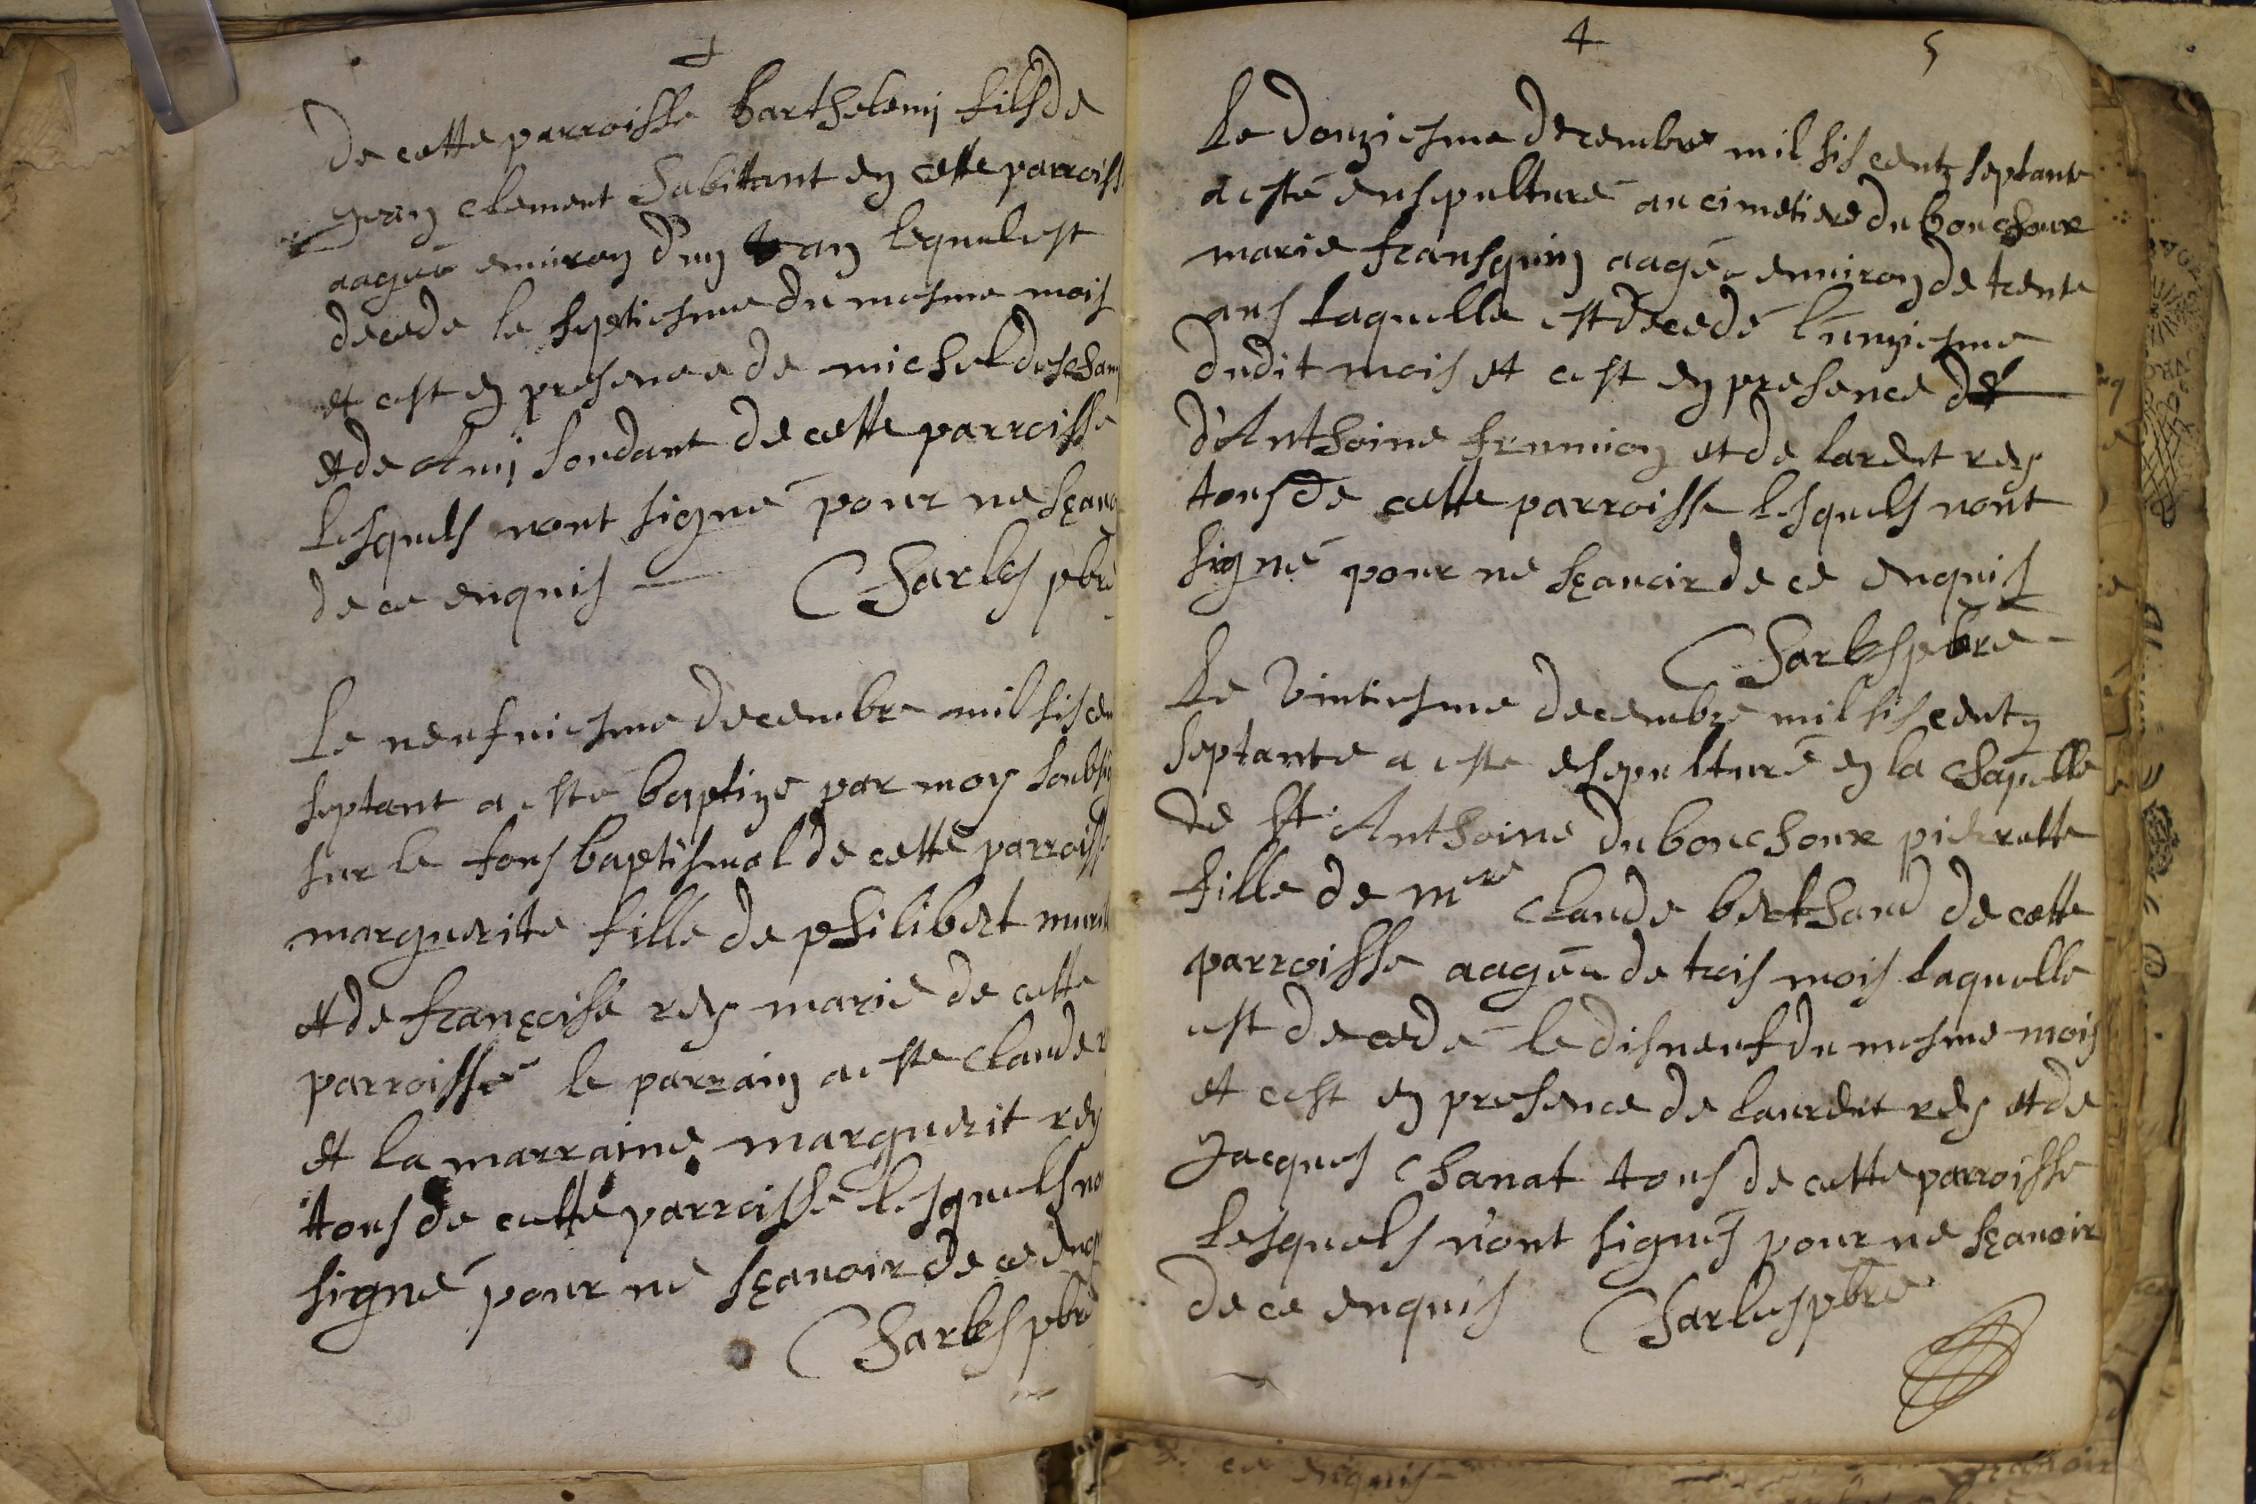 de cette parroisse barthelemy fils de
jean clement habittant en cette parroiss
aagée environ d'un an lequel est
decede le septiesme du mesme mois
et cest en presence de michel descham
et de Amy sondant de cette parroisse
lesquels nont signé pour ne sçavo
de ce enquis Charles pbre
Le neufviesme decembre mil sis cen
septant a esté baptize par moy soubsig
sur le fons baptismal de cette parroiss
marguerite fille de philibert
et de françoise rey marié de cette
parroisse le parrain a este Claude
et la marraine marguerit rey
tous de cette parroisse lesquels no
signé pour ne sçavoir de ce enq
Charles pbre
4
5
Le douziesme decembre mil sis centz septante
a esté ensepulturé au cimetiere du bouchoux
marie fransquin aagée environ de trente
ans laquelle est decedé l'unziesme
dudit mois et cest en presence de
d'Anthoine et de larent rey
tous de cette parroisse lesquels nont
signé pour ne sçavoir de ce enquis
Charles pbre
Le vintiesme decembre mil sis centz
septante a este esepulturé en la chapelle
de st Anthoine du bouchoux pierrette
fille de mre Claude berthard de cette
parroisse aagée de trois mois laquelle
est decedé le disneuf du mesme mois
et cest en presence de laurent rey et de
Jacques Chanat tous de cette parroisse
lesquels n'ont signés pour ne sçavoir
de ce enquis Charles pbre